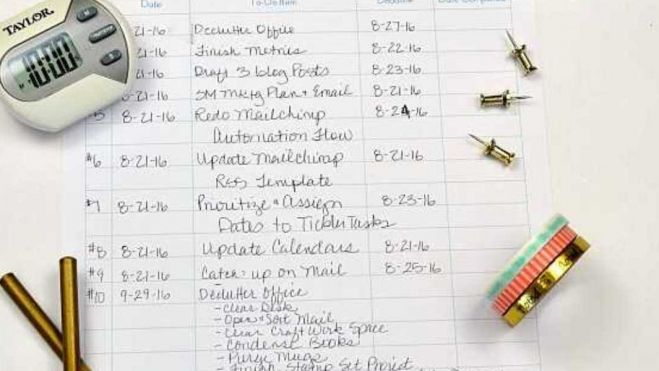 Date To-Do Item Deadline Date Completed
TAYLOR
10:00
21-16 Declutter Office 8-27-16
21-16 Finish Metrics 8-22-16
21-16 Draft 3 blog Posts 8-23-16
8-21-16 SM Mktg Plan + Email 8-21-16
8-21-16 Redo Mailchimp 8-24-16
Automation Flow
#6 8-21-16 Update Mailchimp 8-21-16
RSS Template
#7 8-21-16 Prioritize + assign 8-23-16
Dates to Tickler Tasks
#8 8-21-16 Update Calendars 8-21-16
#9 8-21-16 Catch up on Mail 8-25-16
#10 9-29-16 Declutter Office
- Clear Desk
- Open + Sort Mail
- Clear Craft Work Space
- Condense Books
- Purge Mugs
- Finish Stamp Set Project